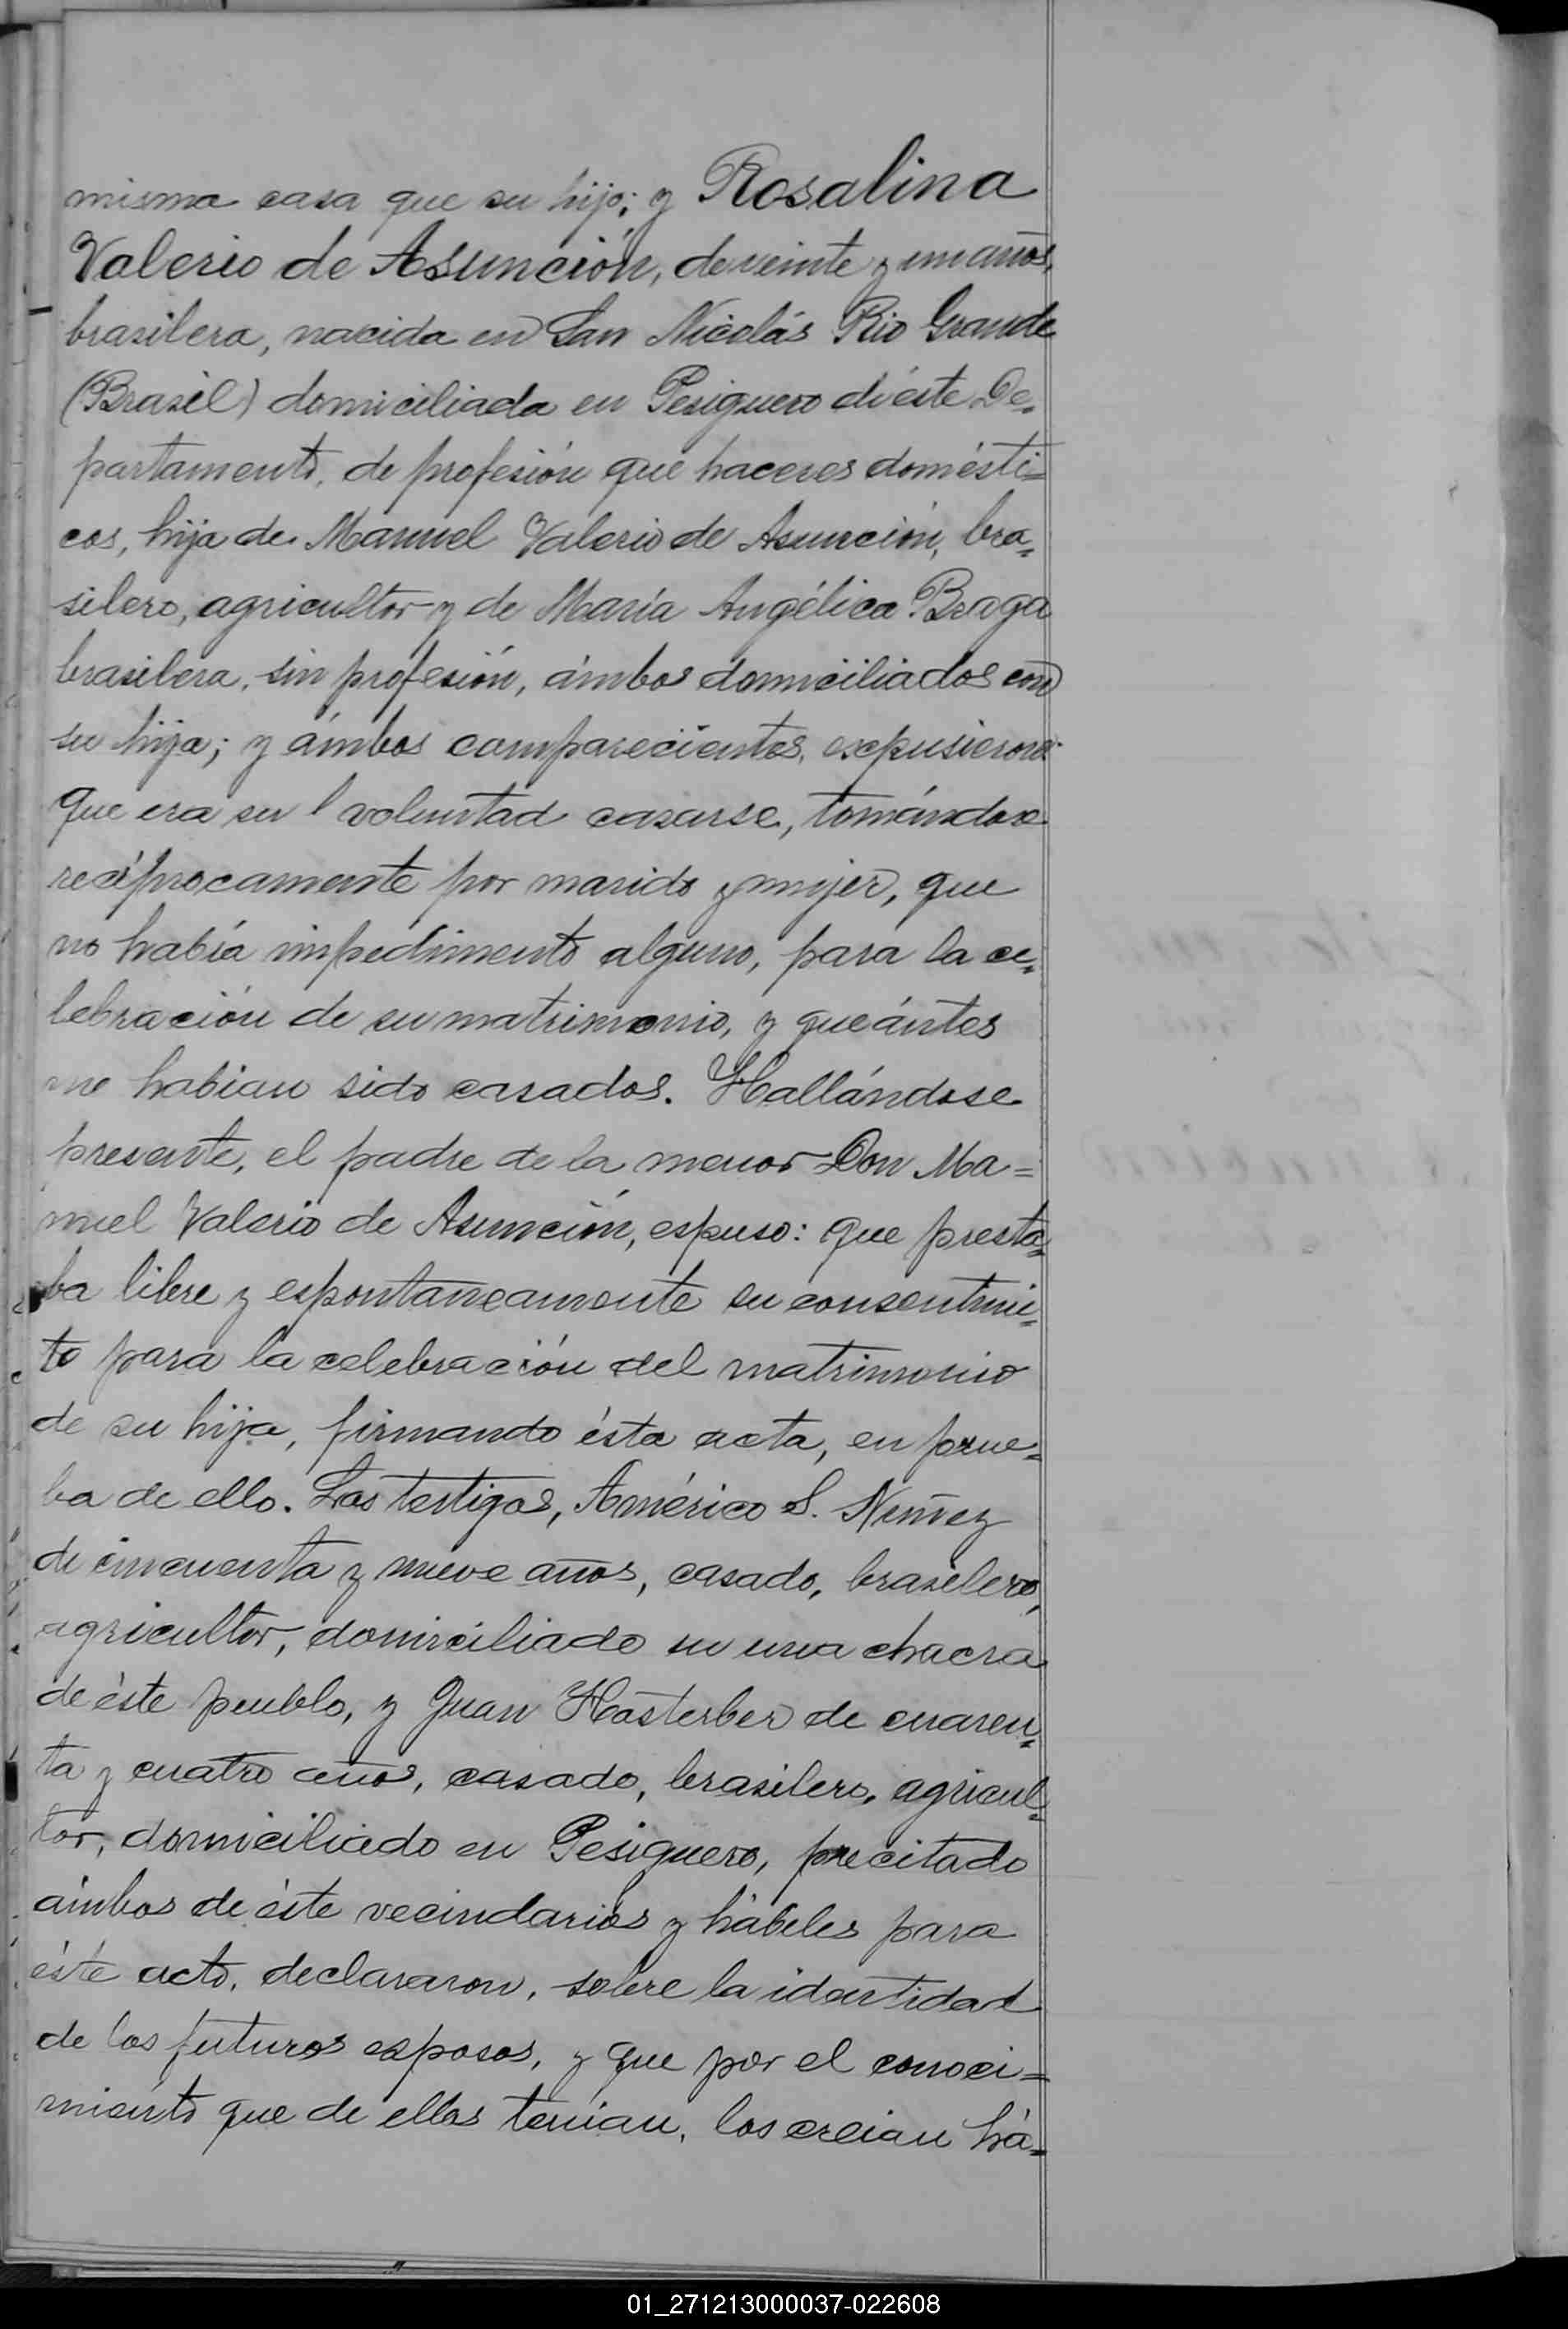 misma casa que su hijo; y Rosalina
Valerio de Asunción, de veinte y un años,
brasilera, nacida en San Nicolás Rio Grande
(Brasil) domiciliada en Pesiguero de éste De=
partamento, de profesión que haceres domésti=
cos, hija de Manuel Valerio de Asunción, bra=
silero, agricultor y de María Angélica Braga
brasilera, sin profesión, ámbos domiciliados con
su hija; y ámbos comparecientes, expusieron:
Que era su voluntad casarse, tomándose
recíprocamente por marido y mujer, que
no había impedimento alguno, para la ce=
lebración de su matrimonio, y que ántes
no habian sido casados. Hallándose
presente, el padre de la menor Don Ma=
nuel Valerio de Asunción, espuso: que presta=
ba libre y espontaneamente su consentimi=
to para la celebración del matrimonio
de su hija, firmando ésta acta, en prue=
ba de ello. Los testigos, Américo S. Nuñez
de cincuenta y nueve años, casado, brasilero,
agricultor, domiciliado en una chacra
de éste pueblo, y Juan Hosterber de cuaren=
ta y cuatro años, casado, brasilero, agricul=
tor, domiciliado en Pesiguero, precitado
ámbos de éste vecindarios y hábeles para
éste acto, declararon, sobre la identidad
de los futuros esposos, y que por el conoci=
miento que de ellos tenian, los creian há=
01_271213000037-022608